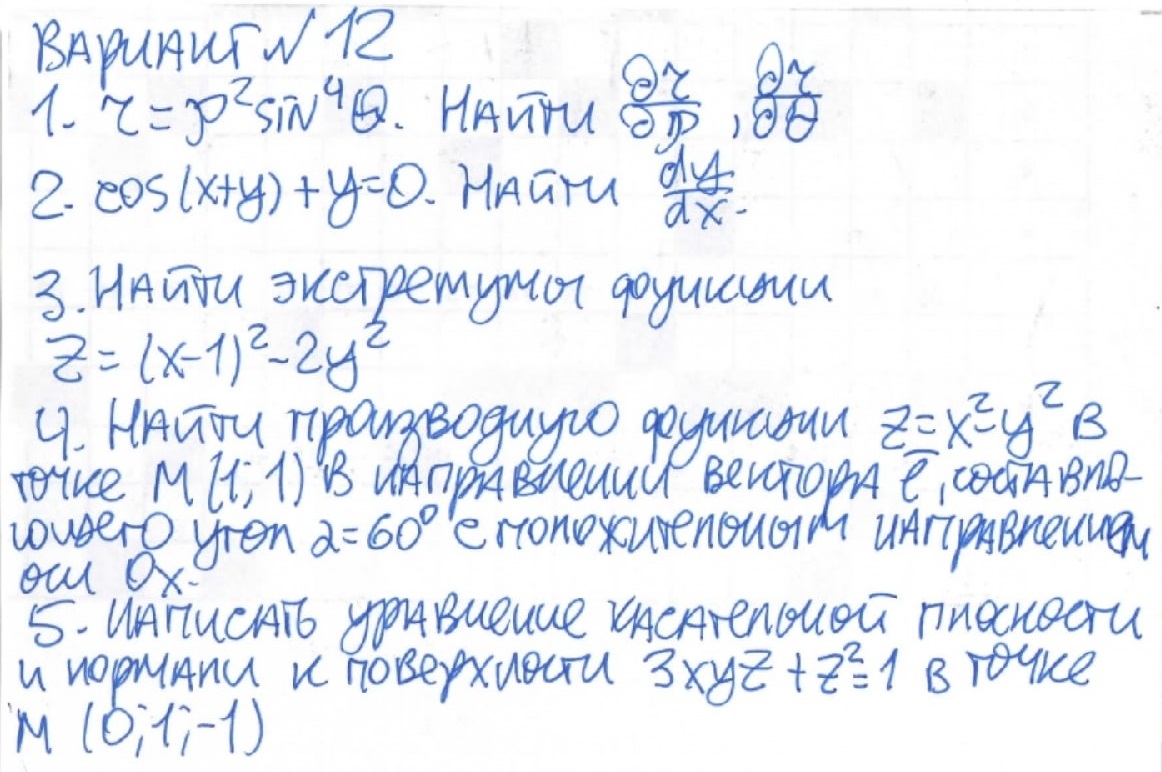 Вариант № 12
1. r = ρ² sin⁴θ. Найти ∂r/∂ρ, ∂r/∂θ
2. cos(x+y)+y=0. Найти dy/dx.
3. Найти экстремумы функции
z = (x-1)² - 2y²
4. Найти производную функции z=x²-y² в
точке M(1; 1) в направлении вектора ē, составля-
ющего угол α=60° с положительным направлением
оси Ox.
5. Написать уравнение касательной плоскости
и нормали к поверхности 3xyz + z² = 1 в точке
M (0; 1; -1)